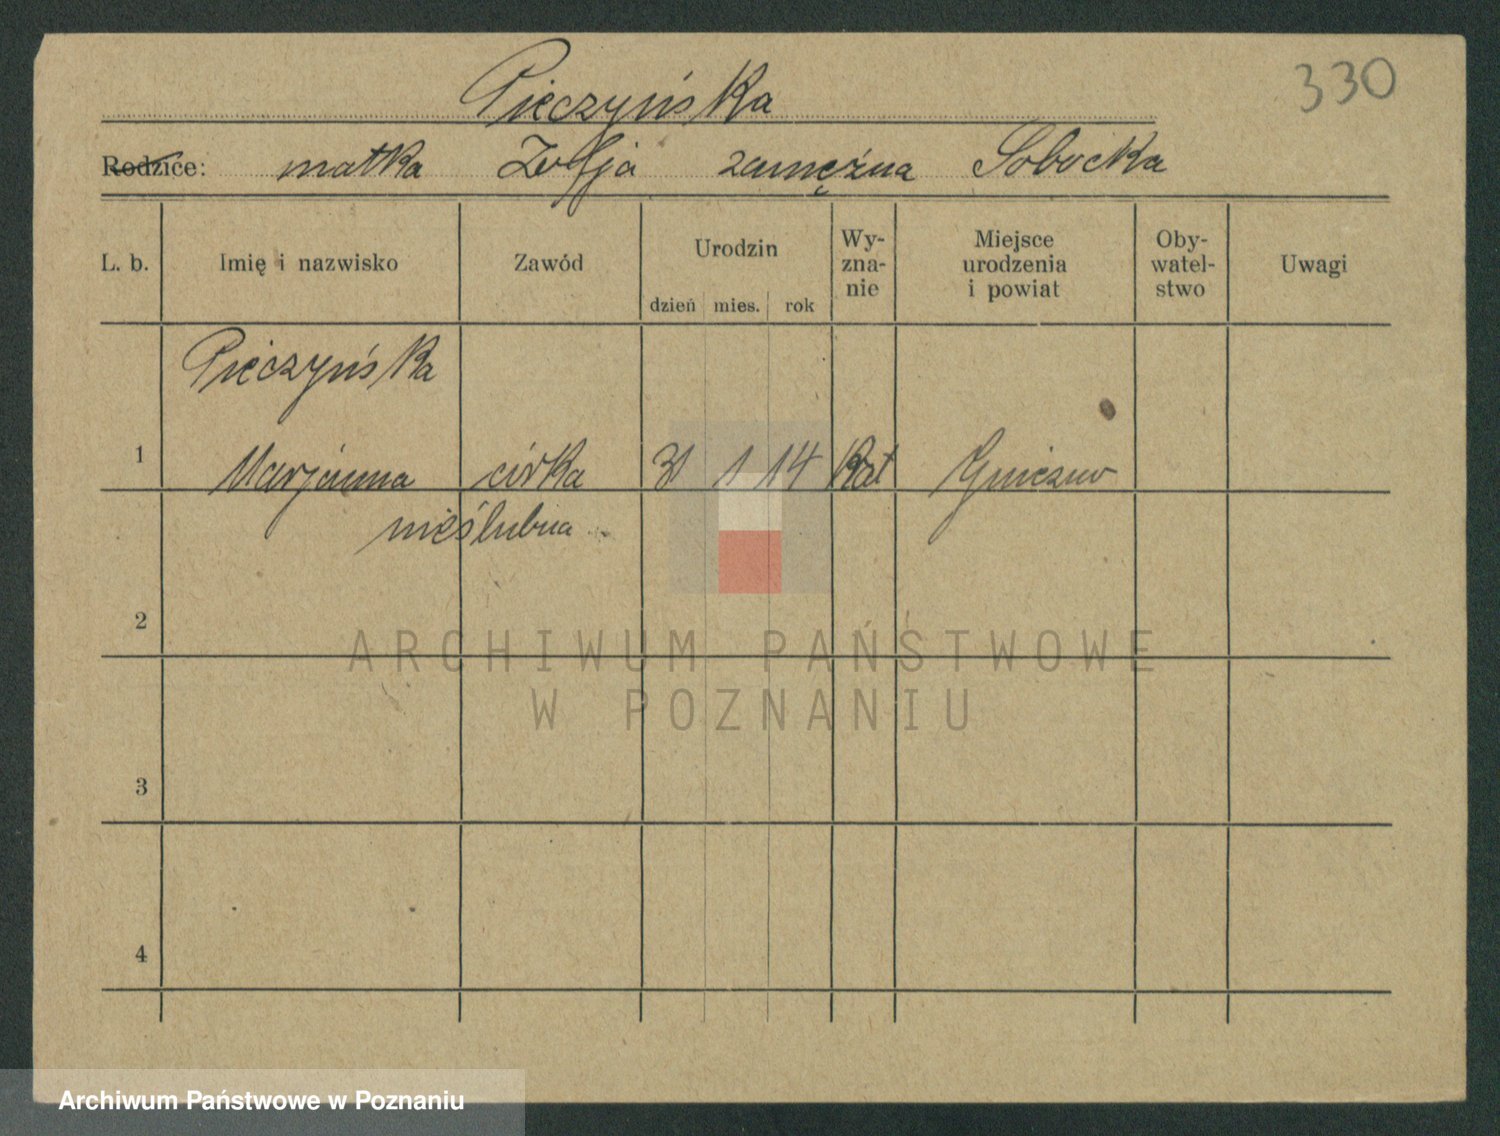 330
Pieczyńska
Rodzice: matka Zofja zamężna Sobocka
L. b. Imię i nazwisko Zawód Urodzin dzień mies. rok Wy-zna-nie Miejsce urodzenia i powiat Oby-watel-stwo Uwagi
Pieczyńska
1 Marjanna córka 31 1 14 Kat Gniezno
nieślubna
2
ARCHIWUM PAŃSTWOWE
W POZNANIU
3
4
Archiwum Państwowe w Poznaniu